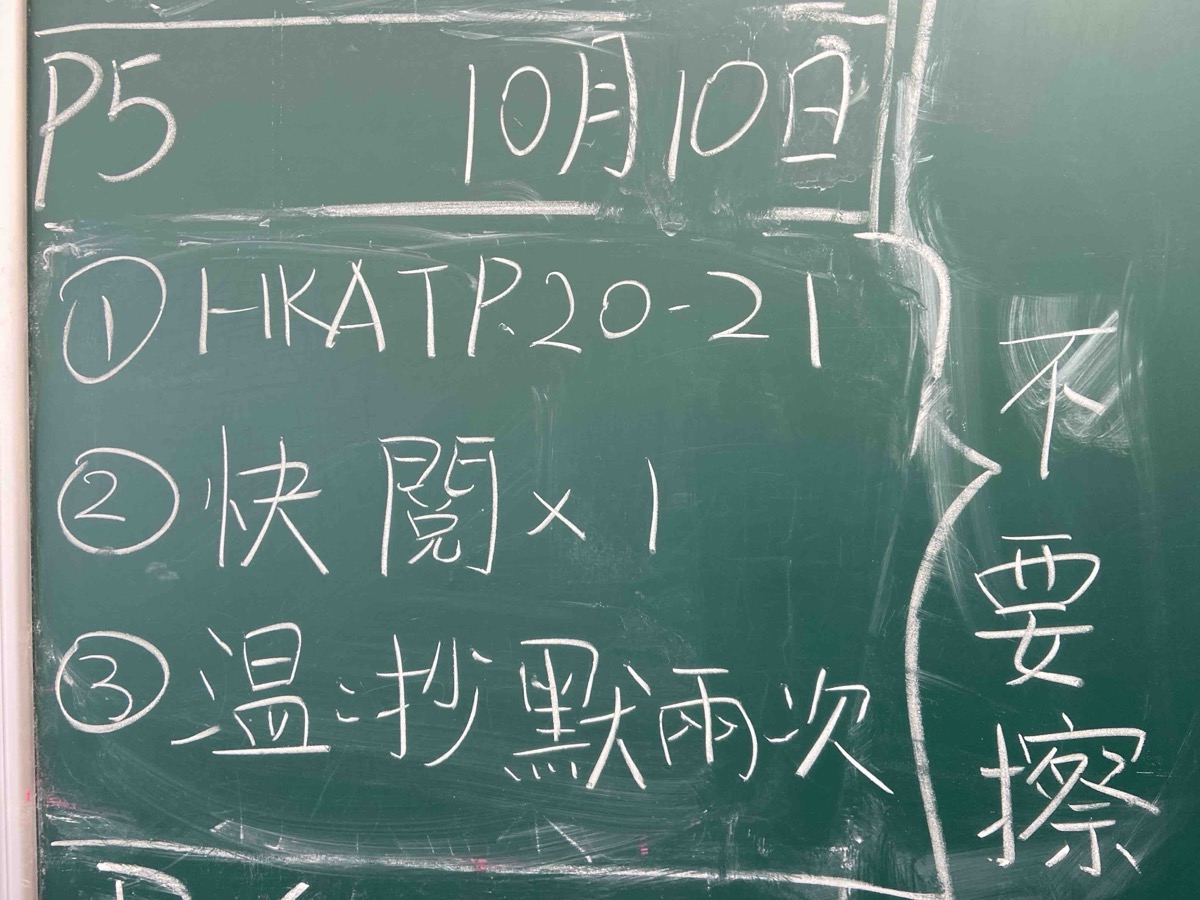 P5 10月10日
① HKAT P.20-21
② 快閱×1
③ 温:抄默兩次
不要擦